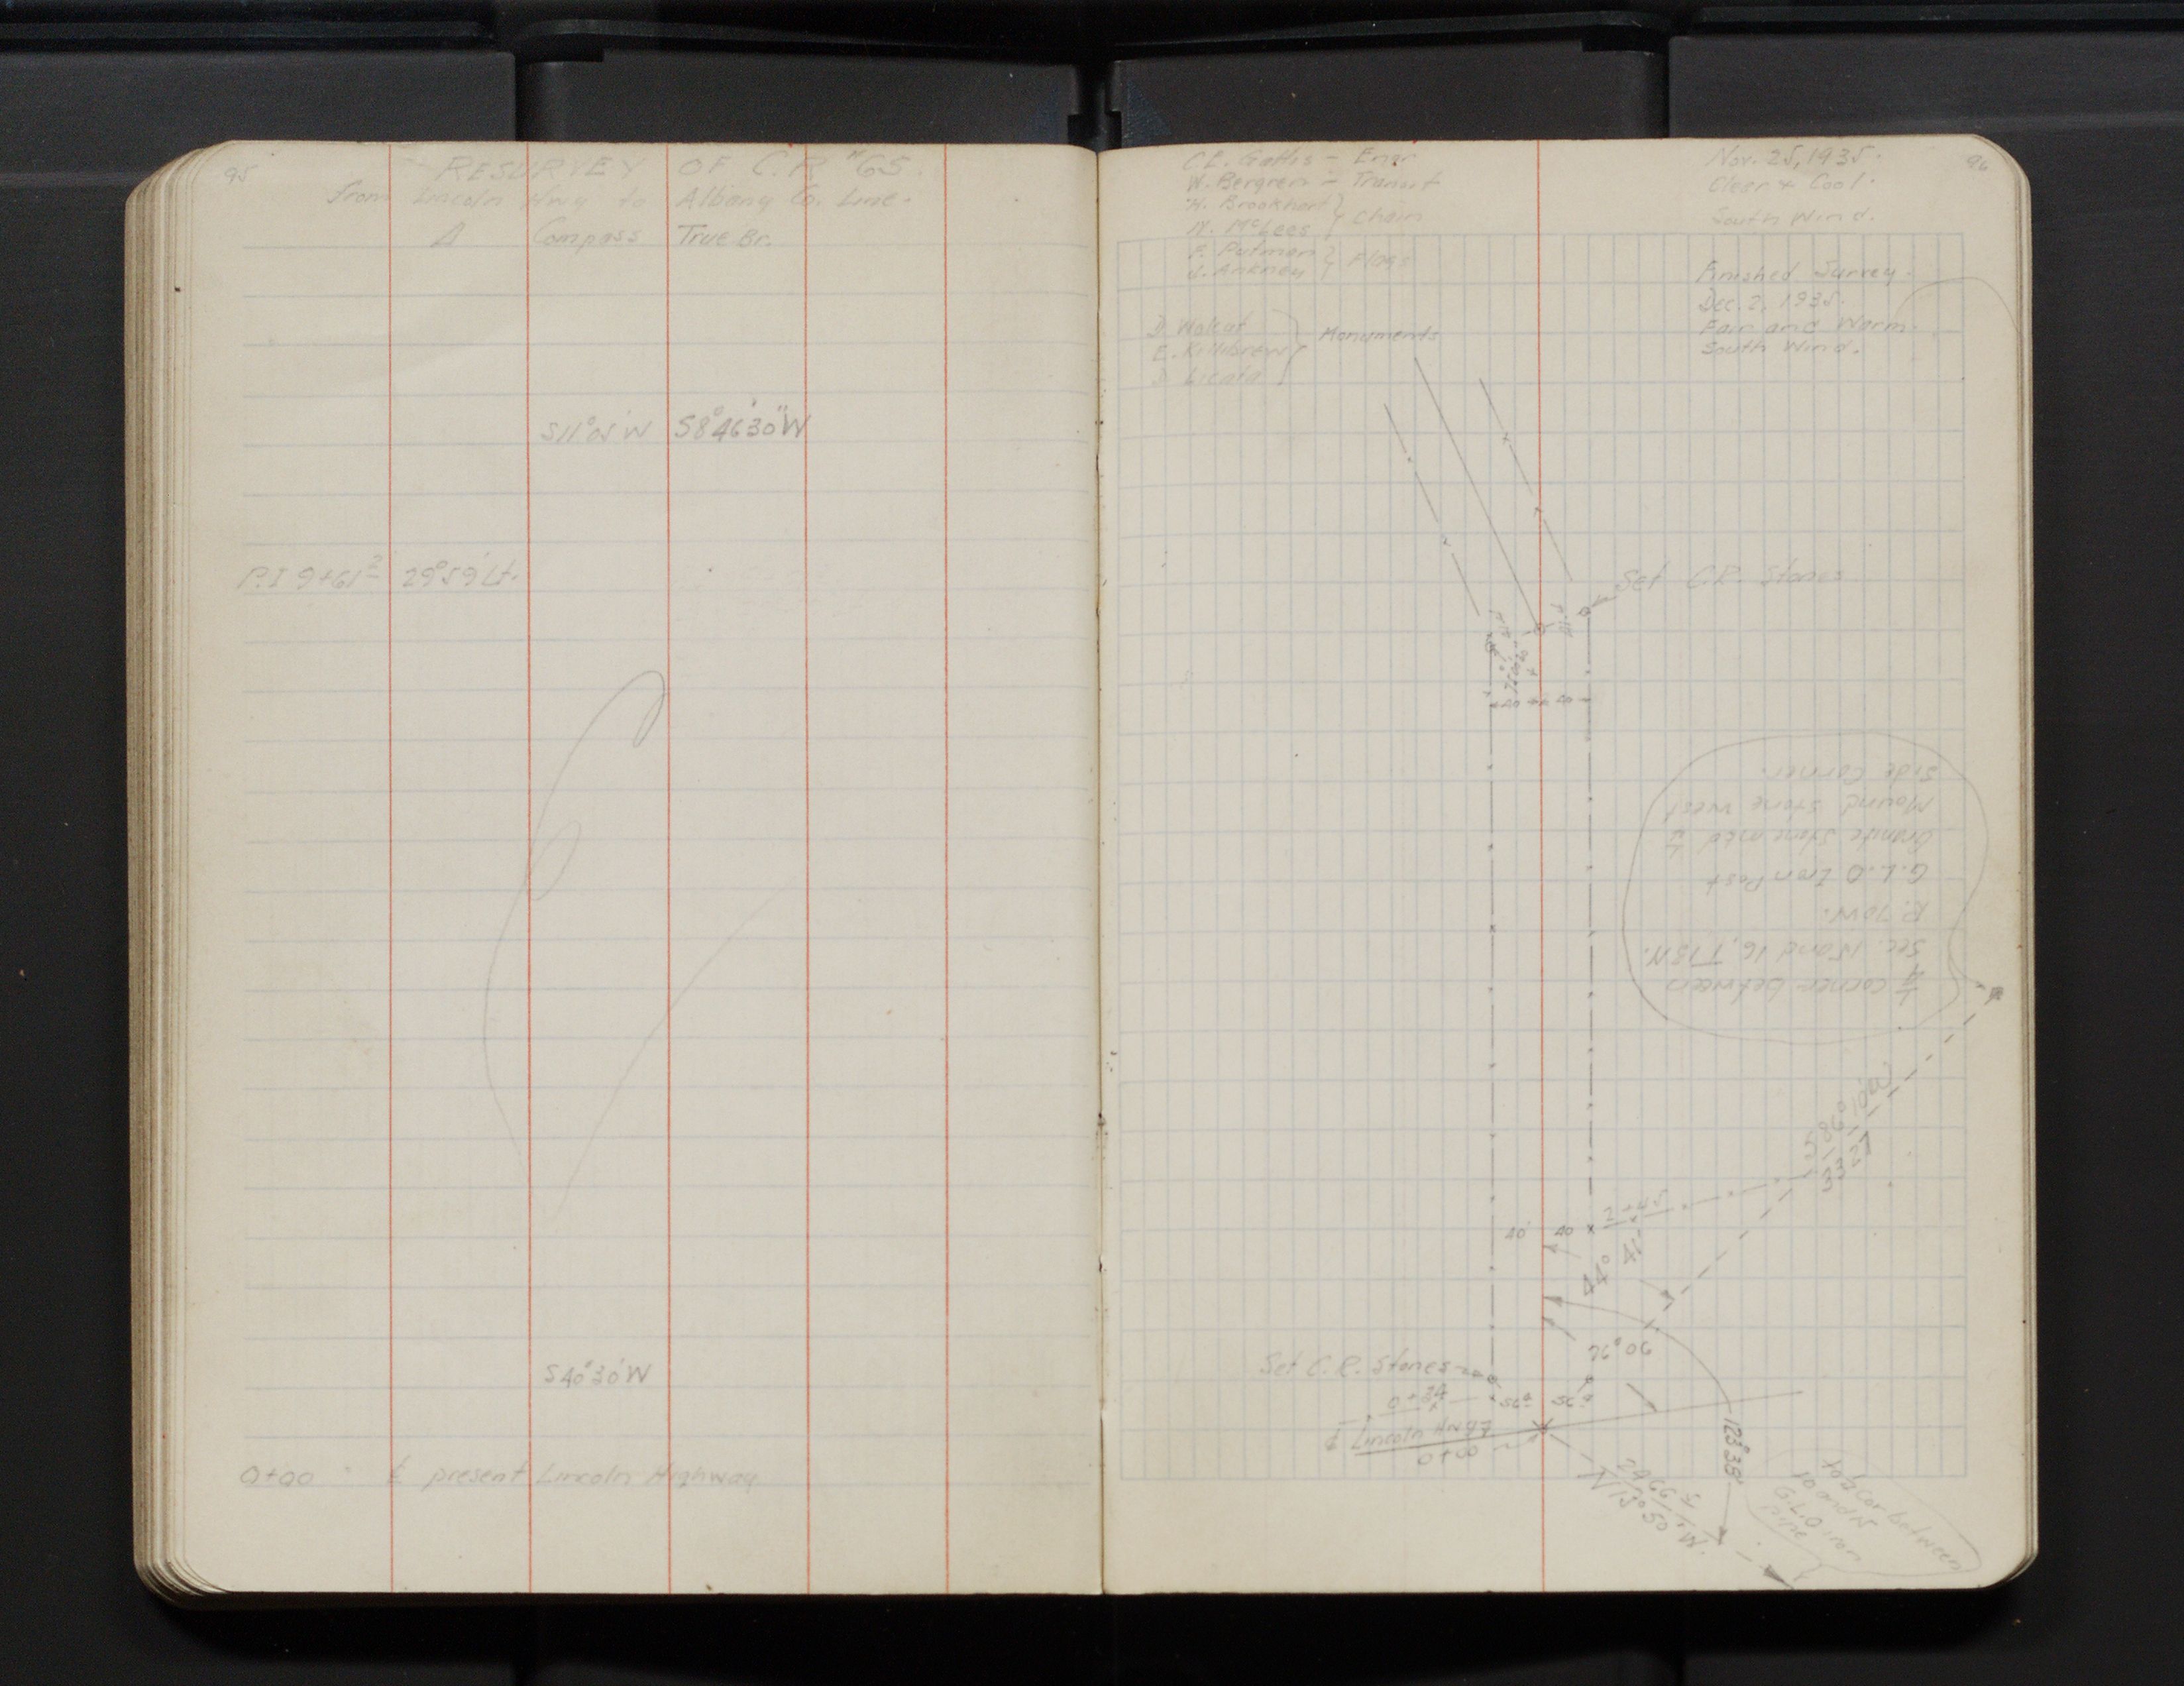 95
RESURVEY OF C.R. #65.
from Lincoln Hwy to Albany Co. Line.
Δ Compass True Br.
S11°05'W S8°46'30"W
P.I 9+61² 29°59'Lt.
S40°30'W
0+00 ℄ present Lincoln Highway
96
C.E. Gattis - Engr.
W. Bergren - Transit
H. Brookhart
N. McLees } Chain
P. Putman
J. Ankney } Flags
D. Walcat
E. Killibrew } Monuments
D.
Nov. 25, 1935.
Clear & Cool.
South Wind.
Finished Survey.
Dec. 2, 1935.
Fair and Warm.
South Wind.
Set C.R. Stones
40 40
1/4 corner between
Sec. 15 and 16, T13N.
R. 70W.
G.L.O Iron Post
Granite Stone mcd 1/4
Mound stone west
side corner.
S86°10'W
3327
2+45
40' 40
76°06
Set C.R. Stones
0+34
℄ Lincoln Hwy
0+00
123°38'
N13°50'W.
2966.5
1/4 cor between
10 and 15
G.L.O iron
pipe